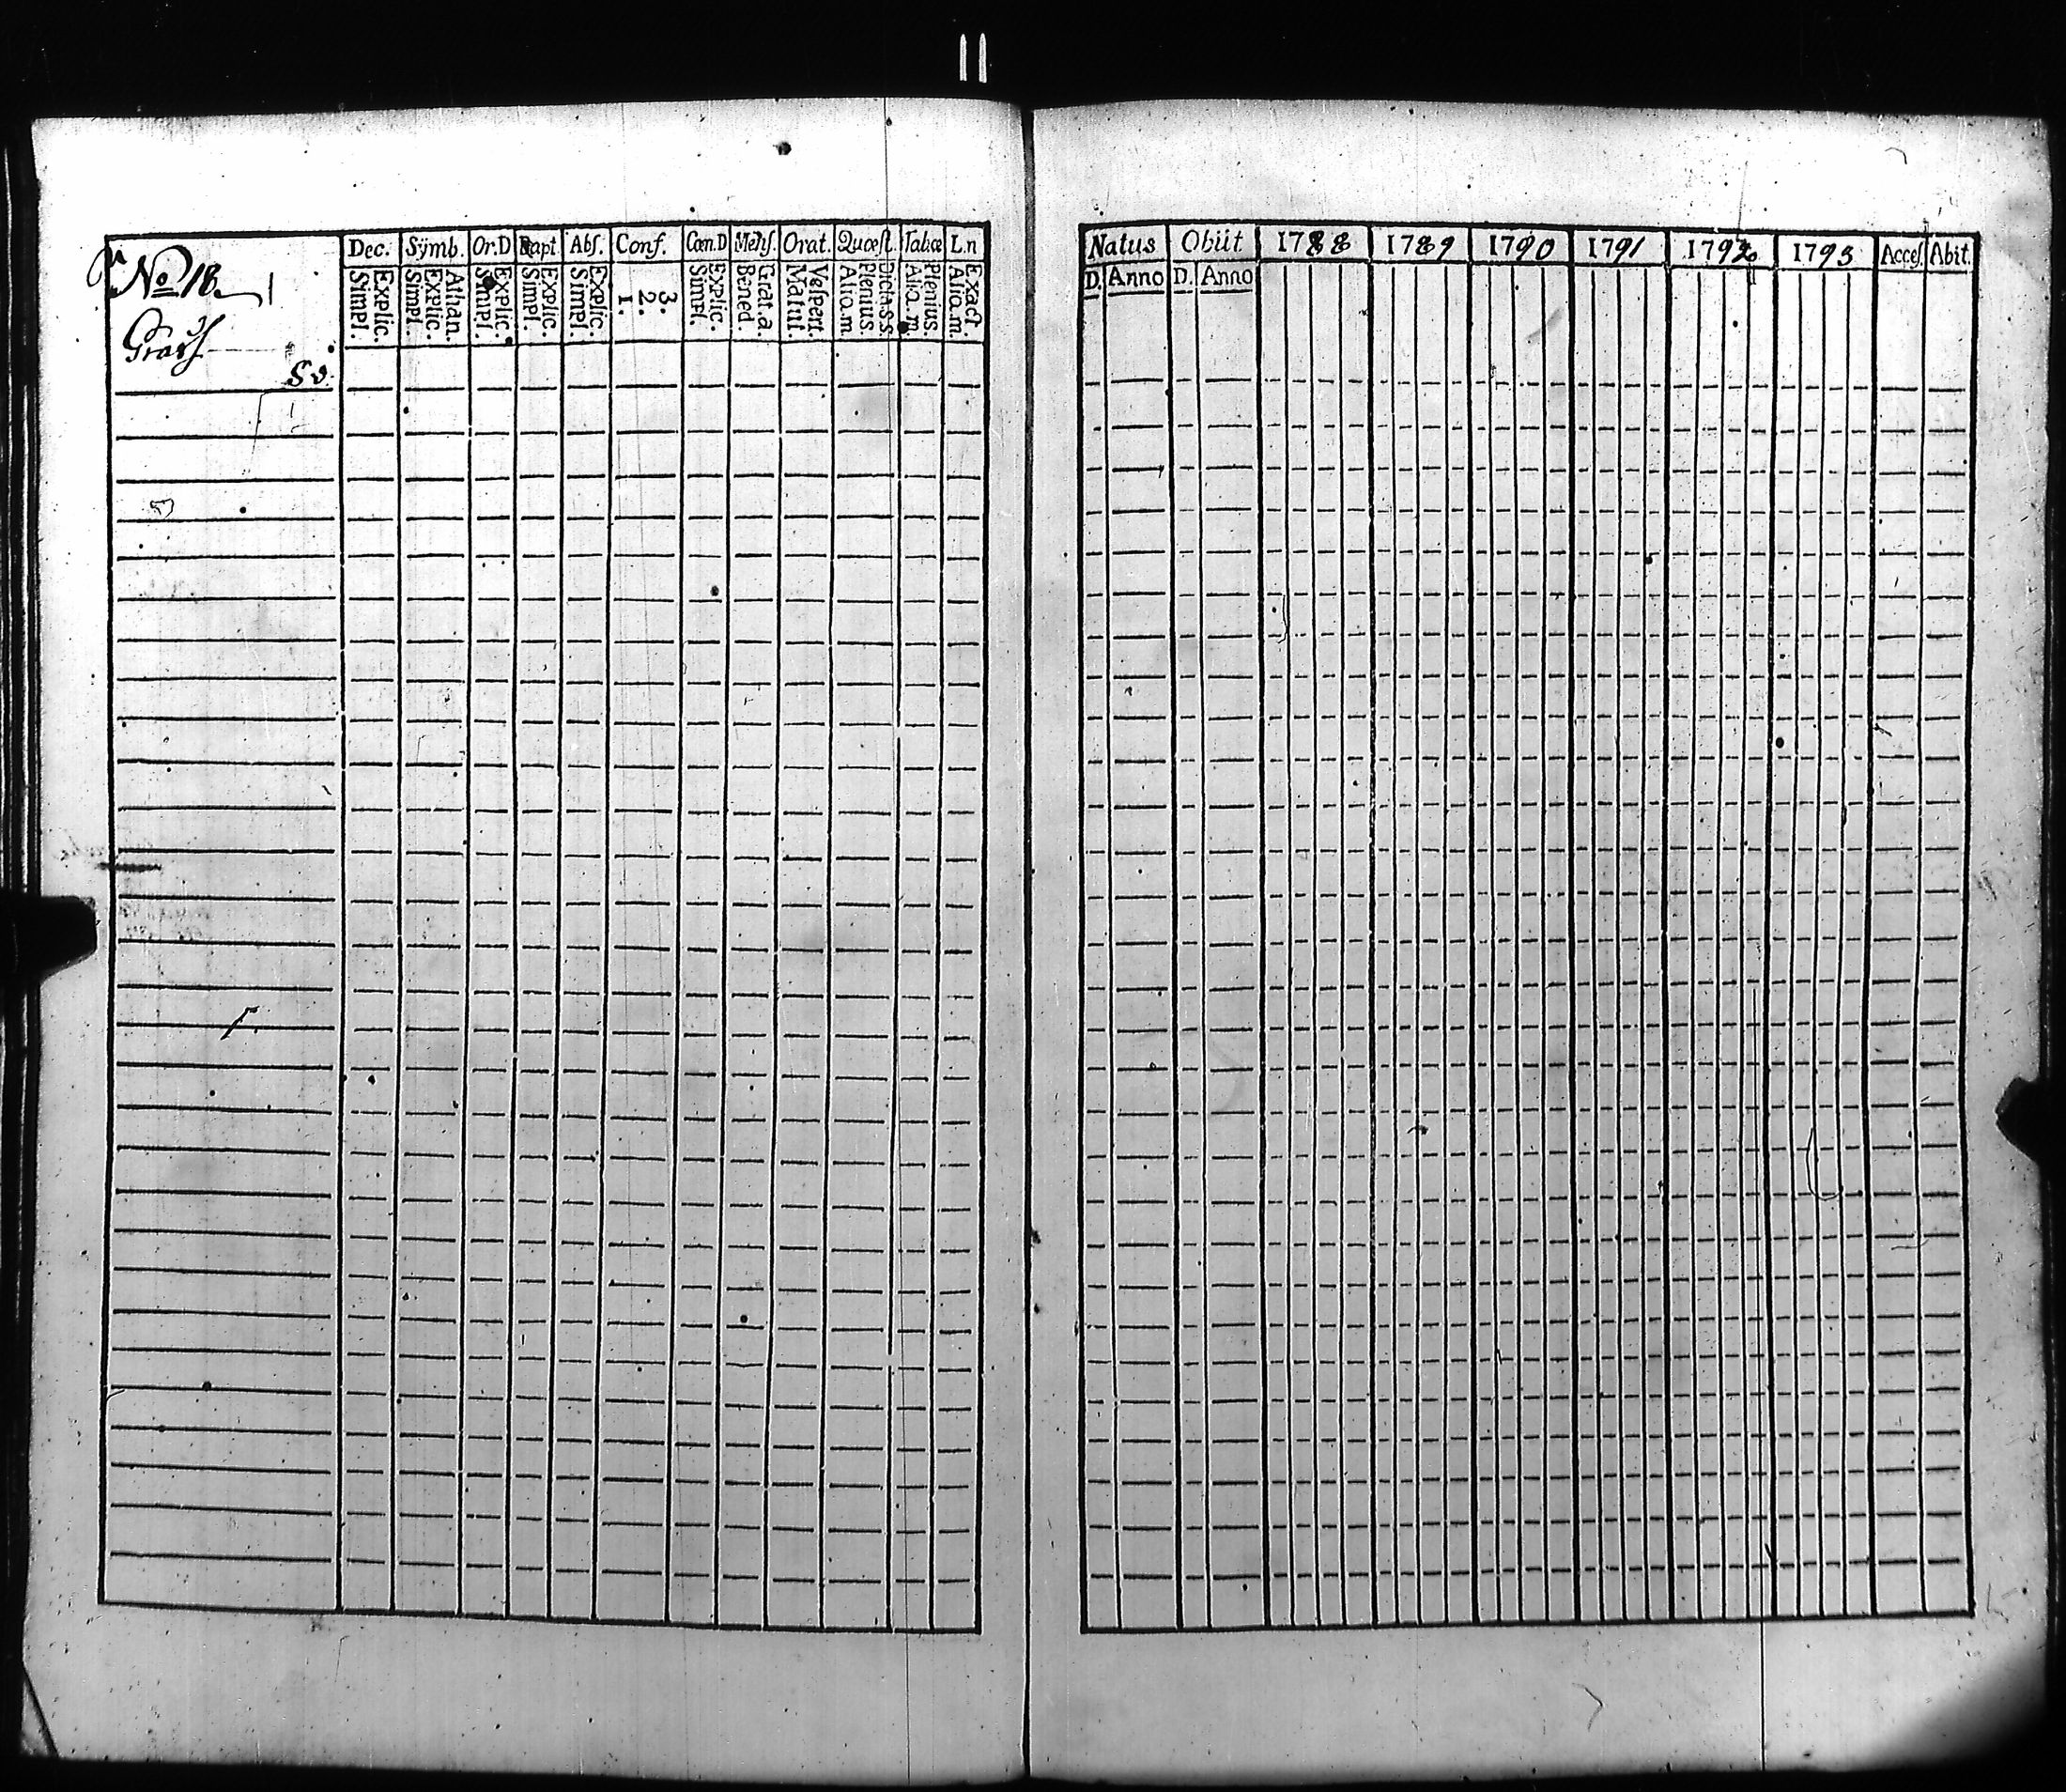 Dec. Sÿmb. Or.D Bapt. Abs. Conf. Com.D Mens. Orat. Quæst. Tabæ L.n
No 18.
Explic. Simpl.
Athan. Explic. Simpl.
Explic. Simpl.
Explic. Simpl.
Explic. Simpl.
3. 2. 1.
Explic. Simpl.
Grat.a. Bened.
Vespert. Matut.
Plenius. Aliq.m.
Plenius. Aliq.m.
Exact. Aliq.m.
Natus Obiit 1788 1789 1790 1791 1792 1793 Acces. Abit.
D. Anno D. Anno